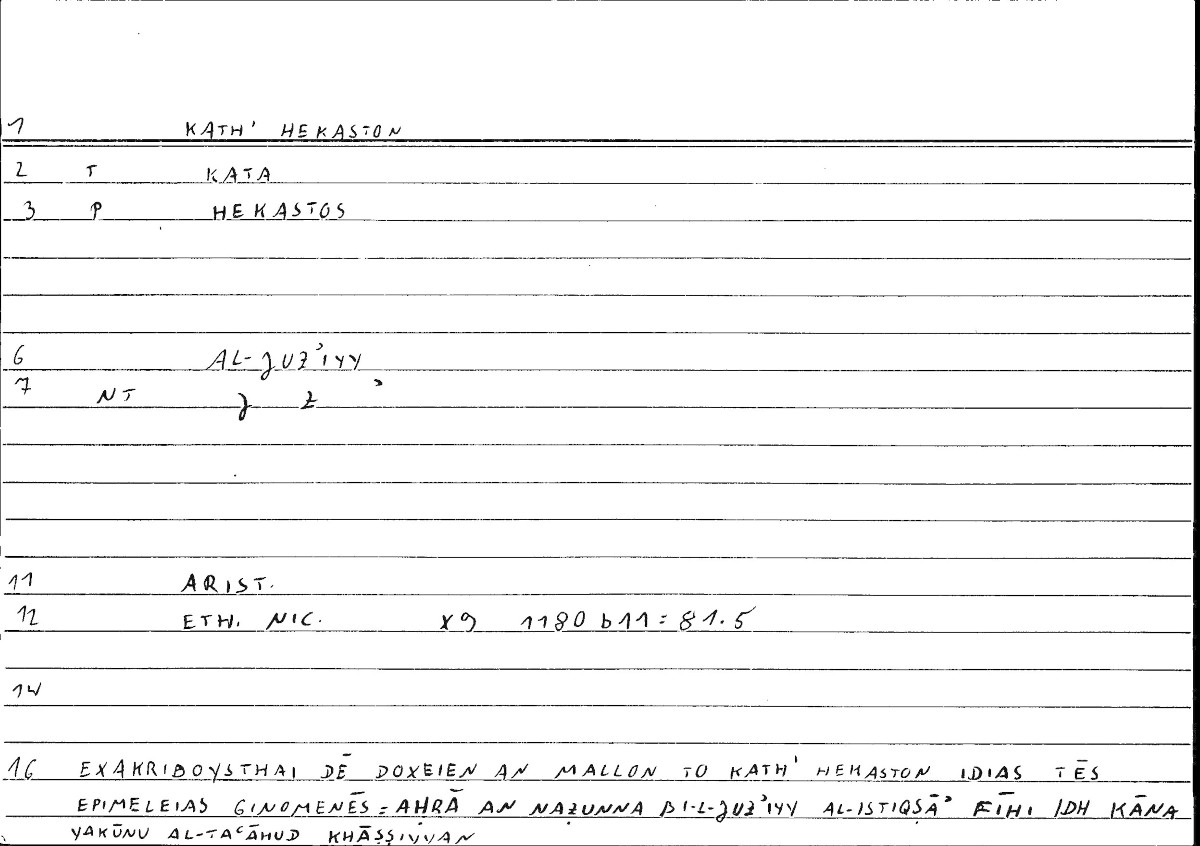 1 KATH' HEKASTON
2 T KATA
3 P HEKASTOS
6 AL-JUZʾIYY
7 NT J Z ʾ
11 ARIST.
12 ETH. NIC. X9 1180 b11 = 81.5
14
16 EXAKRIBOYSTHAI DĒ DOXEIEN AN MALLON TO KATH' HEKASTON IDIAS TĒS
EPIMELEIAS GINOMENĒS = AḤRĀ AN NAẒUNNA BI-L-JUZʾIYY AL-ISTIQṢĀʾ FĪHI IDH KĀNA
YAKŪNU AL-TAʿĀHUD KHĀṢṢIYYAN